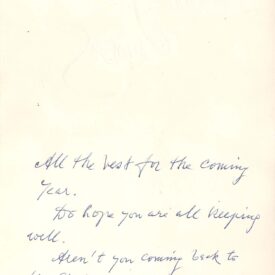 All the best for the coming
Year.
Do hope you are all keeping
well.
Aren't you coming back to